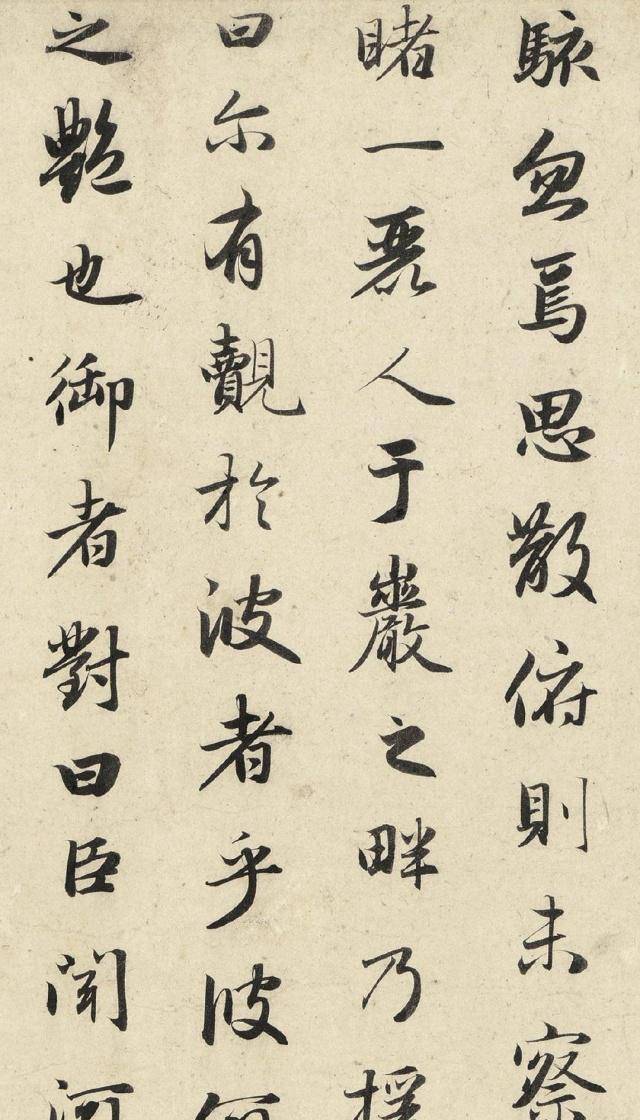 駭忽焉思散俯則未察
睹一麗人于巖之畔乃援
曰尔有覿於彼者乎彼何
之艷也御者對曰臣聞河